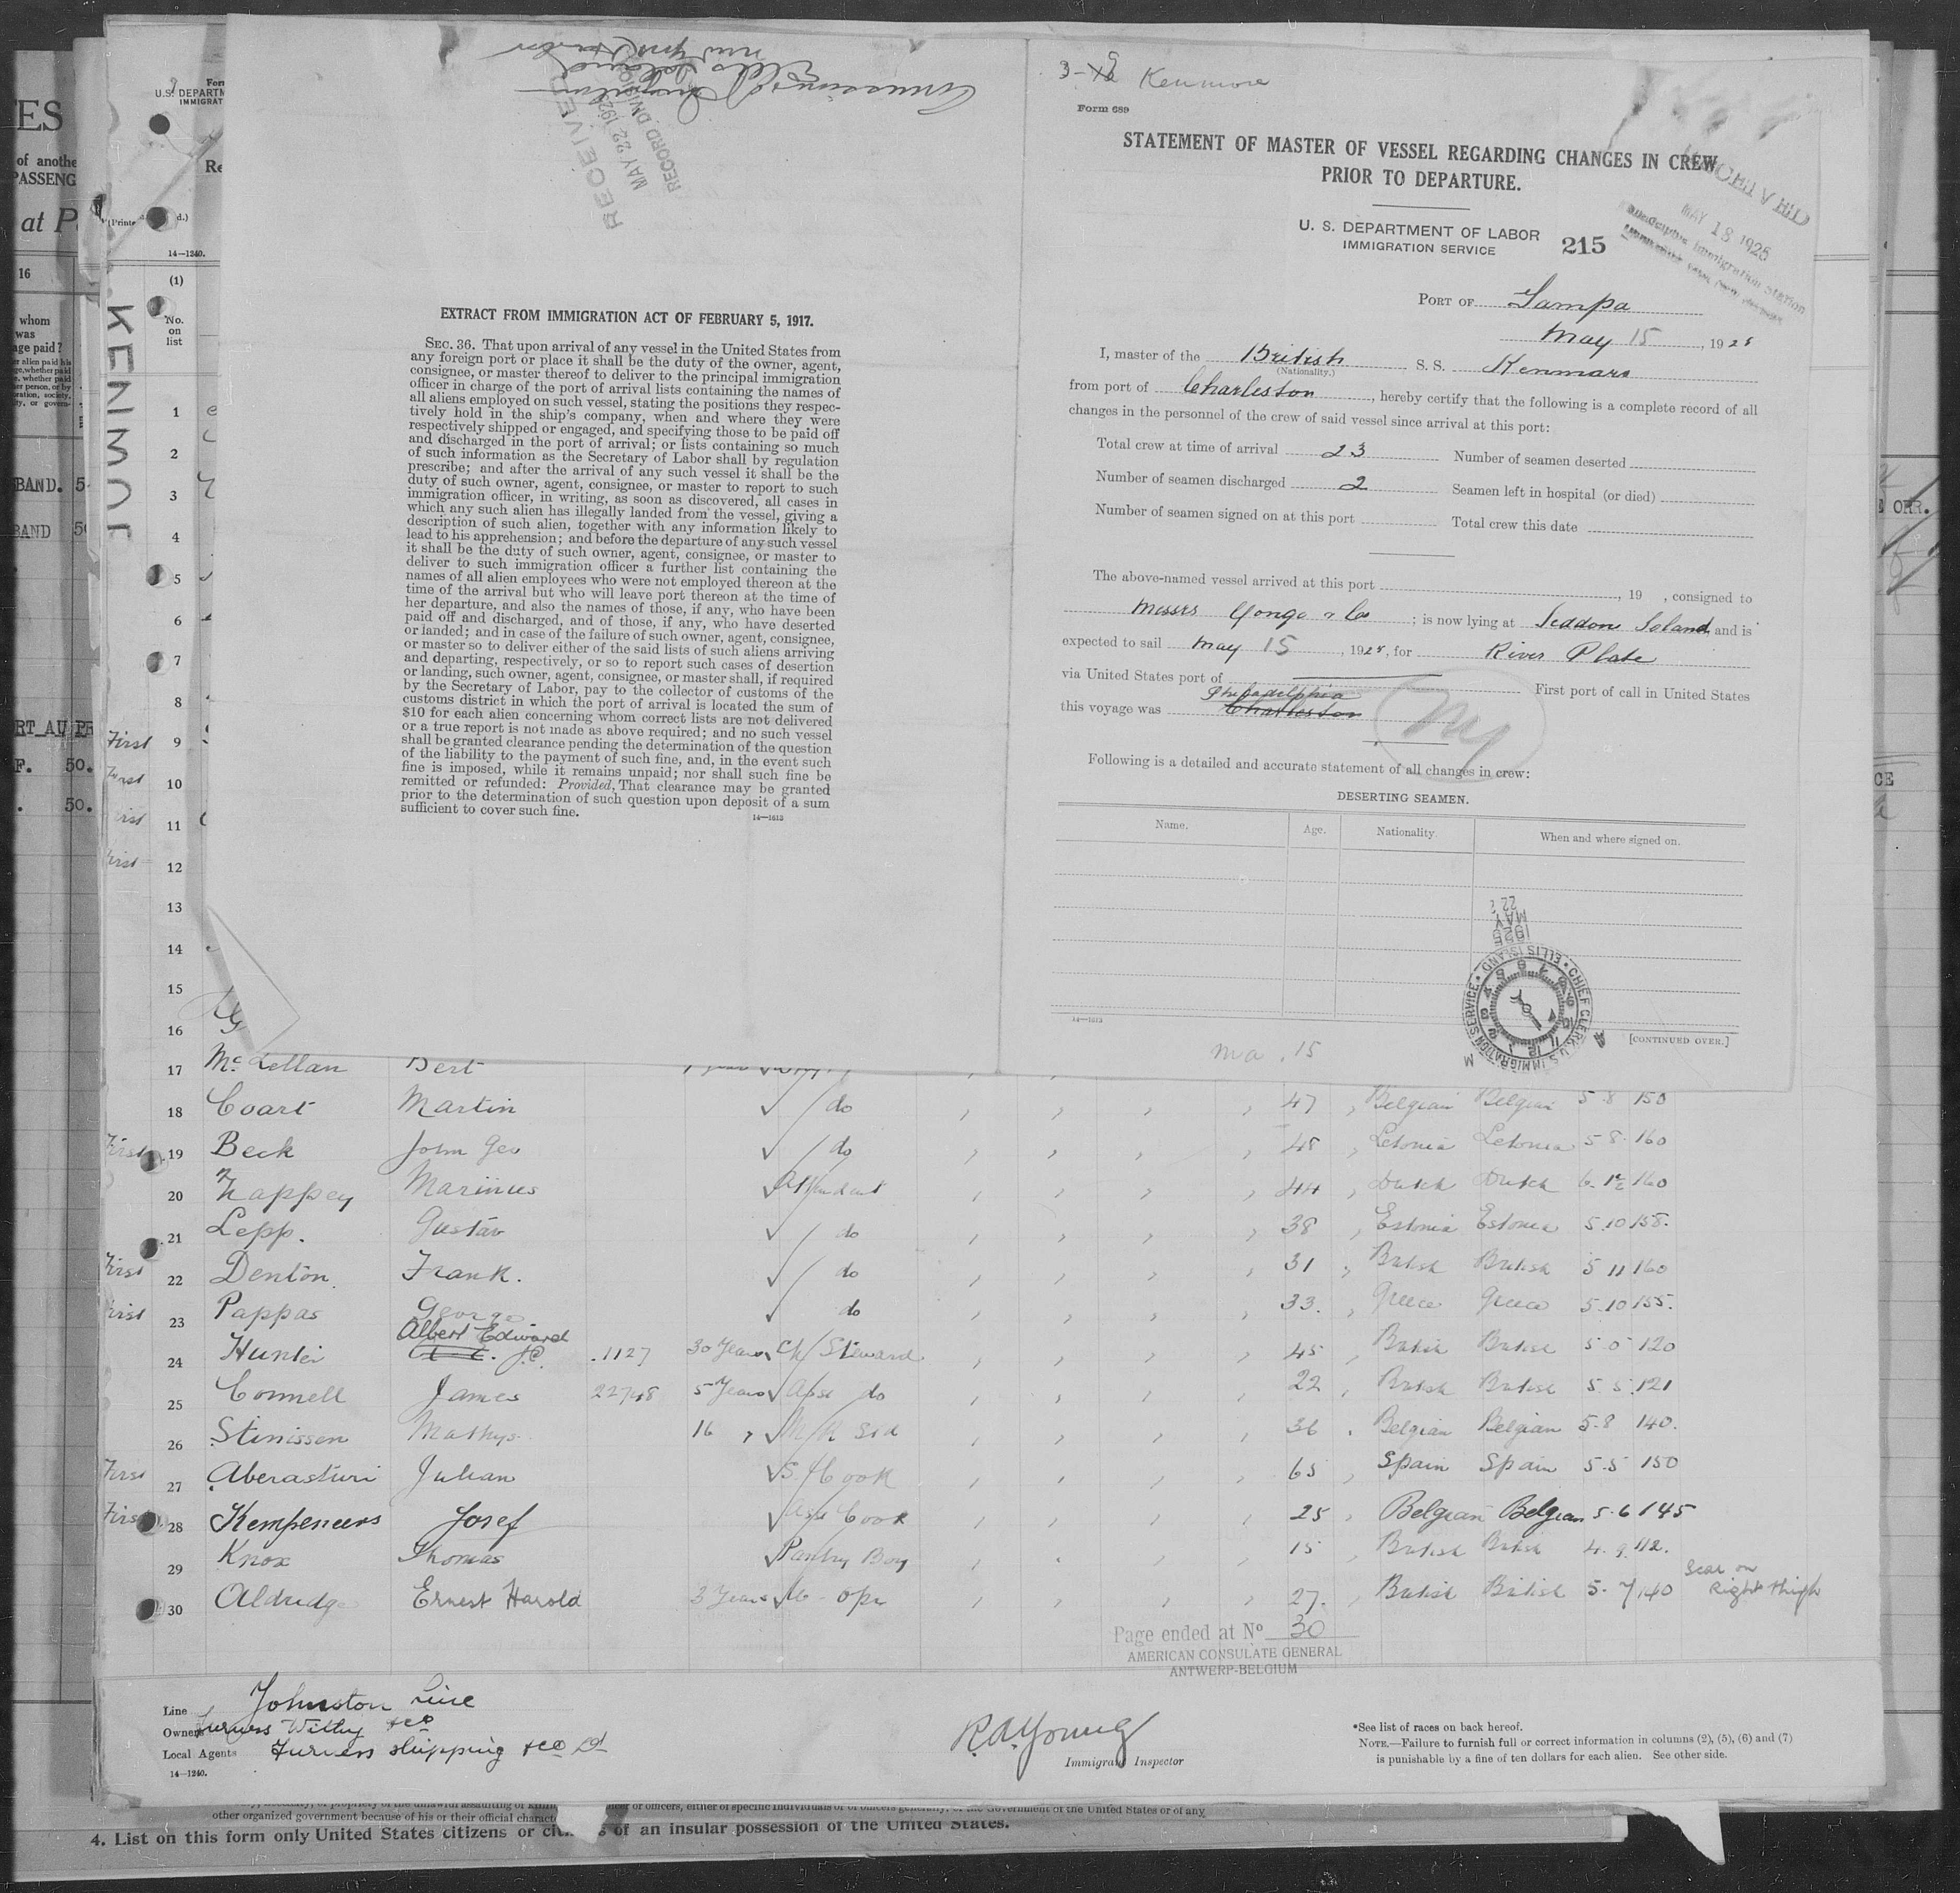 Commissioner of
Immigration
Ellis Island
New York Harbor
RECEIVED
MAY 22 1925
RECORD DIVISION
EXTRACT FROM IMMIGRATION ACT OF FEBRUARY 5, 1917.
SEC. 36. That upon arrival of any vessel in the United States from
any foreign port or place it shall be the duty of the owner, agent,
consignee, or master thereof to deliver to the principal immigration
officer in charge of the port of arrival lists containing the names of
all aliens employed on such vessel, stating the positions they respec-
tively hold in the ship's company, when and where they were
respectively shipped or engaged, and specifying those to be paid off
and discharged in the port of arrival; or lists containing so much
of such information as the Secretary of Labor shall by regulation
prescribe; and after the arrival of any such vessel it shall be the
duty of such owner, agent, consignee, or master to report to such
immigration officer, in writing, as soon as discovered, all cases in
which any such alien has illegally landed from the vessel, giving a
description of such alien, together with any information likely to
lead to his apprehension; and before the departure of any such vessel
it shall be the duty of such owner, agent, consignee, or master to
deliver to such immigration officer a further list containing the
names of all alien employees who were not employed thereon at the
time of the arrival but who will leave port thereon at the time of
her departure, and also the names of those, if any, who have been
paid off and discharged, and of those, if any, who have deserted
or landed; and in case of the failure of such owner, agent, consignee,
or master so to deliver either of the said lists of such aliens arriving
and departing, respectively, or so to report such cases of desertion
or landing, such owner, agent, consignee, or master shall, if required
by the Secretary of Labor, pay to the collector of customs of the
customs district in which the port of arrival is located the sum of
$10 for each alien concerning whom correct lists are not delivered
or a true report is not made as above required; and no such vessel
shall be granted clearance pending the determination of the question
of the liability to the payment of such fine, and, in the event such
fine is imposed, while it remains unpaid; nor shall such fine be
remitted or refunded: Provided, That clearance may be granted
prior to the determination of such question upon deposit of a sum
sufficient to cover such fine.
14—1613
Kenmore
Form 689
STATEMENT OF MASTER OF VESSEL REGARDING CHANGES IN CREW
PRIOR TO DEPARTURE.
U. S. DEPARTMENT OF LABOR
IMMIGRATION SERVICE
215
RECEIVED
MAY 18 1925
Philadelphia Immigration Station
PORT OF Tampa
May 15, 1925
I, master of the British S. S. Kenmare
(Nationality.)
from port of Charleston, hereby certify that the following is a complete record of all
changes in the personnel of the crew of said vessel since arrival at this port:
Total crew at time of arrival 23 Number of seamen deserted
Number of seamen discharged 2 Seamen left in hospital (or died)
Number of seamen signed on at this port Total crew this date
The above-named vessel arrived at this port , 19 , consigned to
Messrs Yonge & Co ; is now lying at Seddon Island and is
expected to sail May 15, 1925, for River Plate
via United States port of First port of call in United States
Philadelphia
this voyage was Charleston
Following is a detailed and accurate statement of all changes in crew:
DESERTING SEAMEN.
Name. Age. Nationality. When and where signed on.
14—1613
[CONTINUED OVER.]
CHIEF CLERK U.S. IMMIGRATION SERVICE • ELLIS ISLAND •
1925 MAY 22
KENMORE
14—1240.
(1)
No.
on
list
1
2
3
4
5
6
7
8
First 9
First 10
First 11
First 12
13
14
15
16
17 McLellan Bert
18 Coart Martin do 47 Belgian Belgian 5 8 150
First 19 Beck John Geo do 48 Letonia Letonia 5 8 160
20 Zappey Marinus Attendant 44 Dutch Dutch 6 1½ 160
21 Lepp. Gustav do 38 Estonia Estonia 5.10 158.
First 22 Denton. Frank. do 31 British British 5 11 160
First 23 Pappas George do 33. Greece Greece 5.10 155.
Albert Edward
24 Hunter 1127 30 Years Ch/Steward 45 British British 5 0 120
25 Connell James 22748 5 Years Asst do 22 British British 5.5. 121
26 Stinissen Mathys. 16 M/R Std 36 Belgian Belgian 5-8 140.
First 27 Aberasturi Julian S/Cook 65 Spain Spain 5.5 150
First 28 Kempeneers Josef Asst Cook 25 Belgian Belgian 5.6 145
29 Knox Thomas Pantry Boy 15 British British 4.9 112.
30 Aldridge Ernest Harold 3 Years W-opr 27. British British 5.7 140 Scar on Right thigh
Page ended at No 30
AMERICAN CONSULATE GENERAL
ANTWERP-BELGIUM
Line Johnston Line
Owners Furness Withy & Co
Local Agents Furness Shipping & Co Ltd
14—1240.
R.A. Young
Immigrant Inspector
*See list of races on back hereof.
NOTE.—Failure to furnish full or correct information in columns (2), (5), (6) and (7)
is punishable by a fine of ten dollars for each alien. See other side.
other organized government because of his or their official
4. List on this form only United States citizens or of an insular possession of the United States.